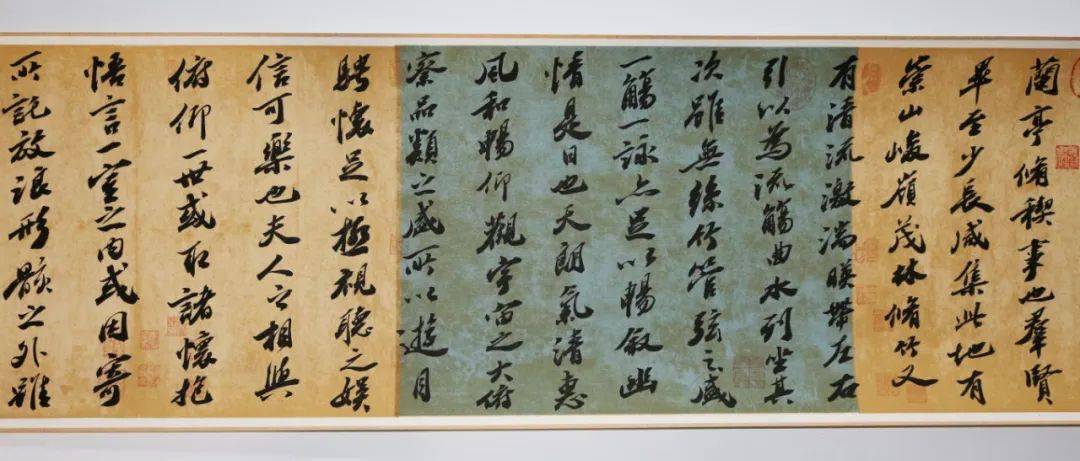 蘭亭脩稧事也羣賢
畢至少長咸集此地有
崇山峻嶺茂林脩竹又
有清流激湍暎帶左右
引以為流觴曲水列坐其
次雖無絲竹管弦之盛
一觴一詠亦足以暢敘幽
情是日也天朗氣清惠
風和暢仰觀宇宙之大俯
察品類之盛所以遊目
騁懷足以極視聽之娛
信可樂也夫人之相與
俯仰一世或取諸懷抱
悟言一室之內或因寄
所託放浪形骸之外雖